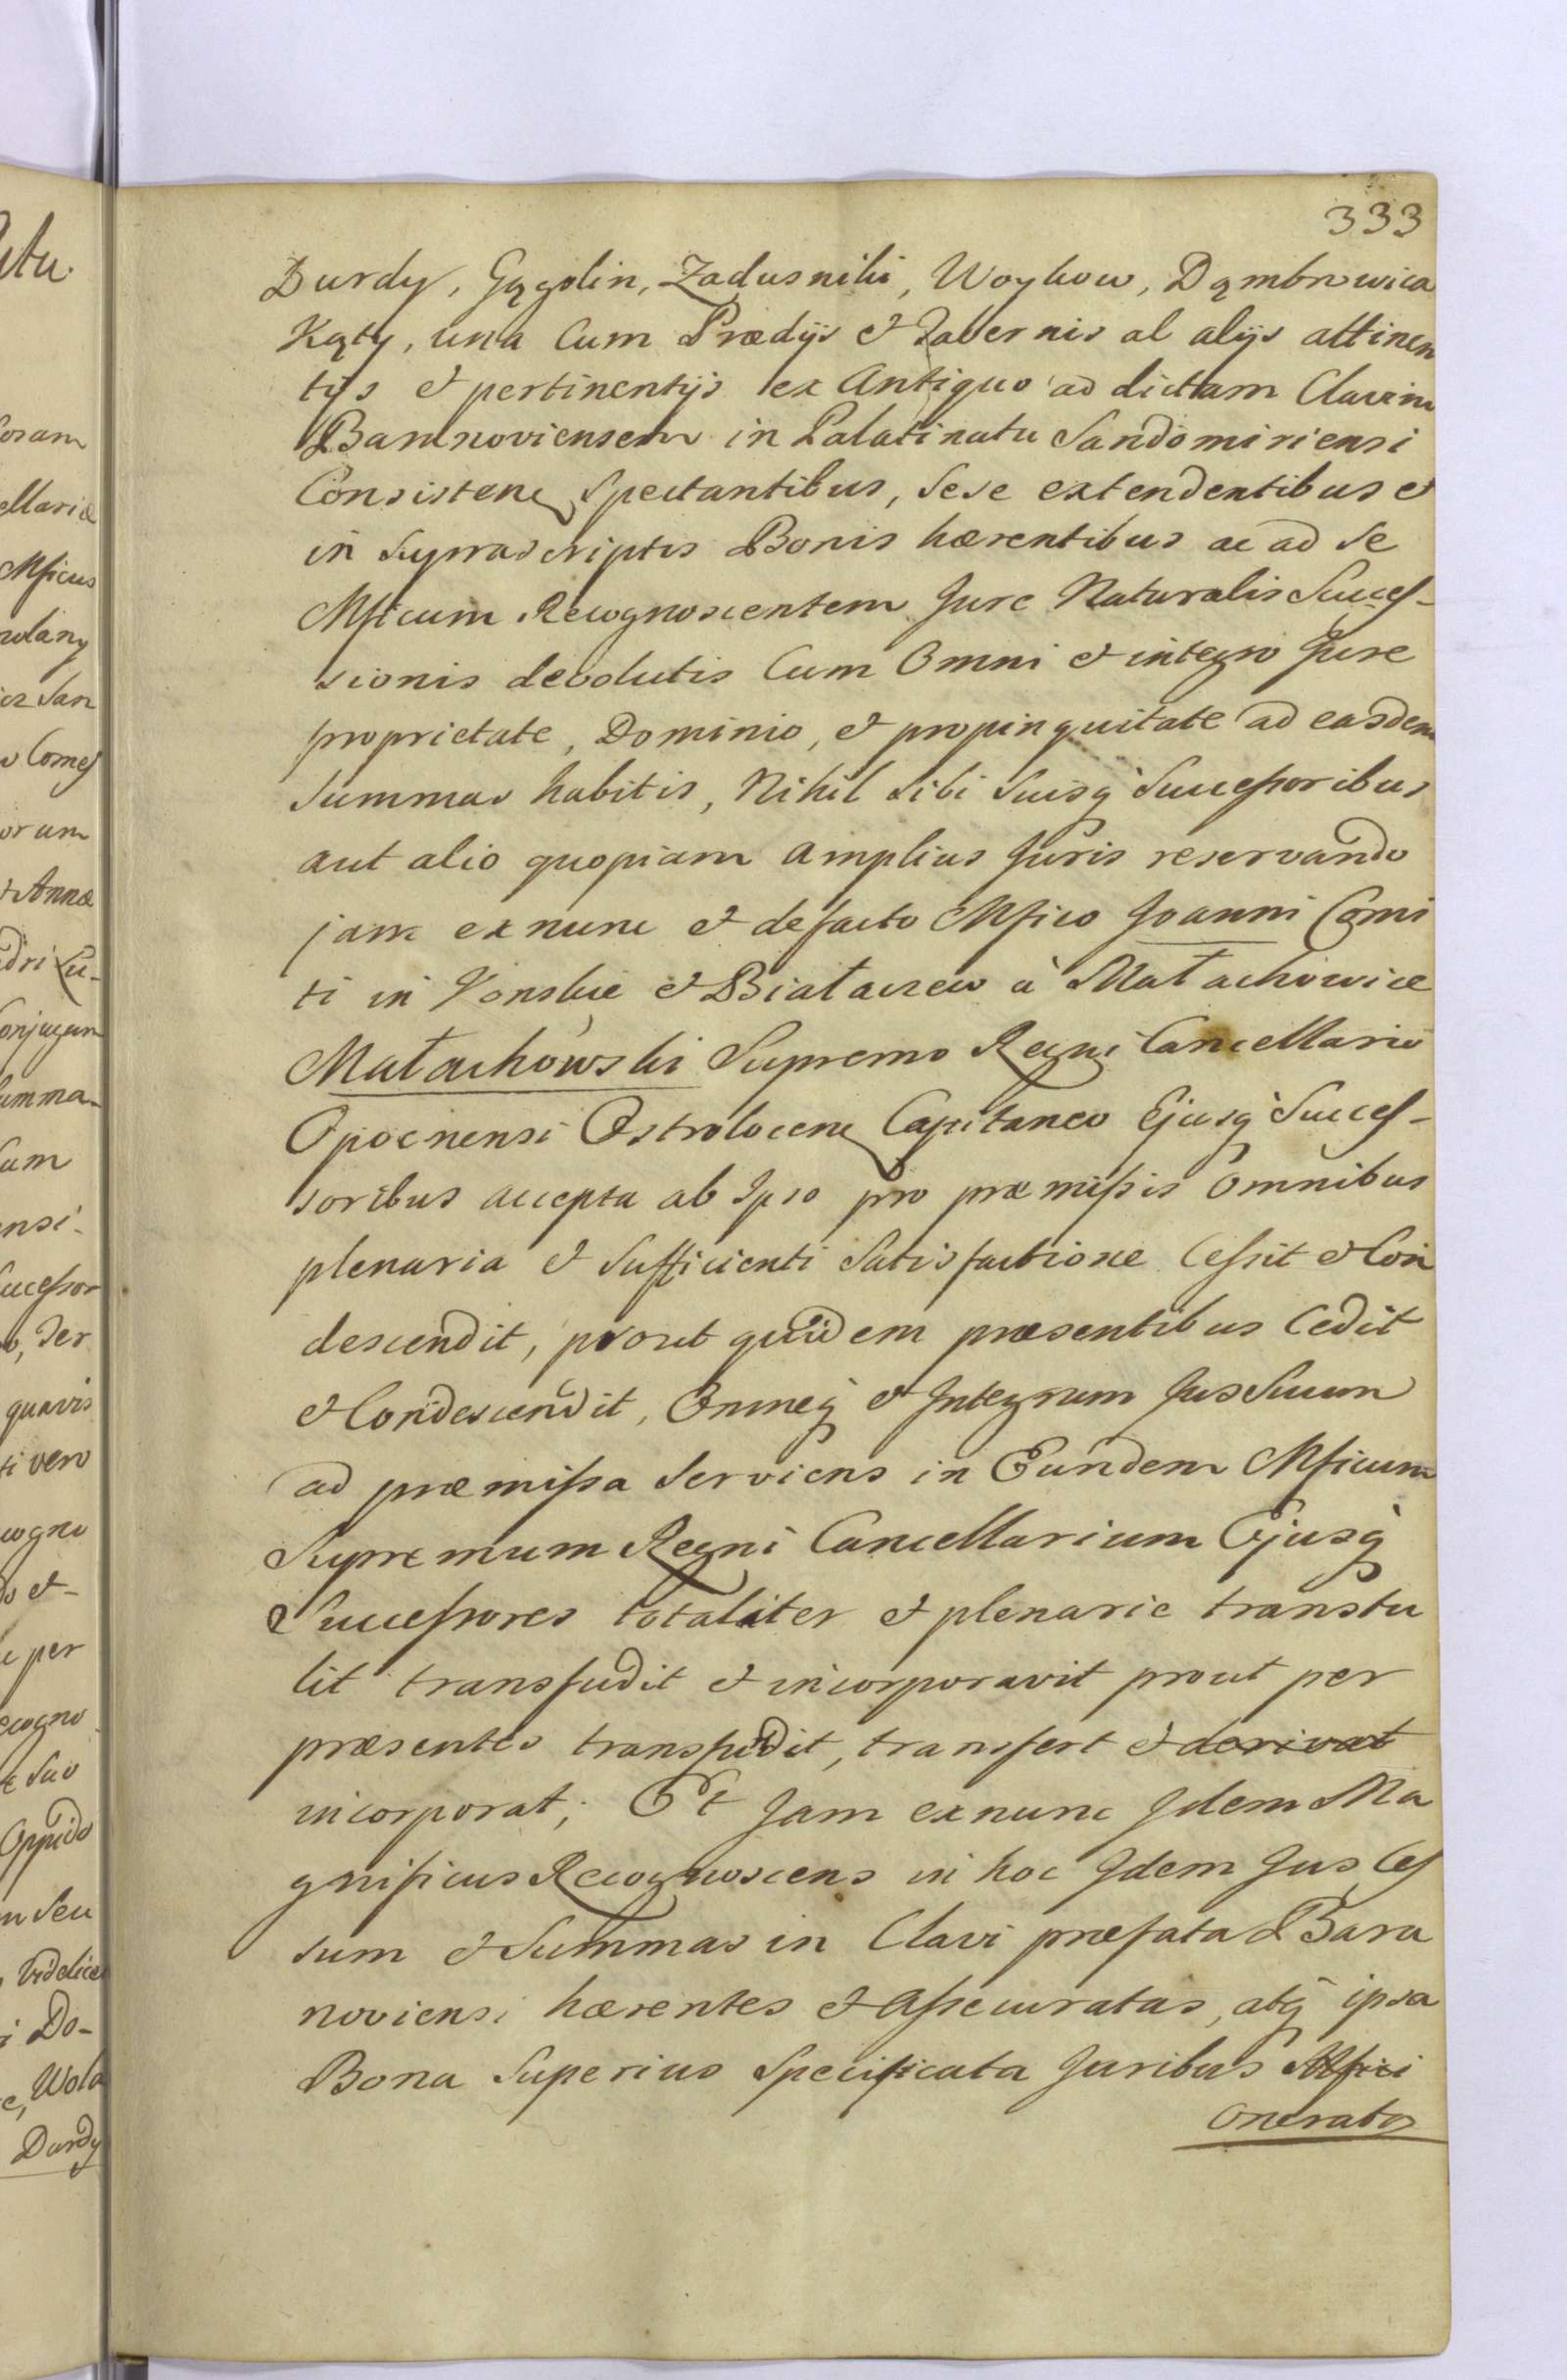 333
Durdy, Gągolin, Zadusniki, Woykow, Dąmbrowica
Kąty, una Cum Prædijs & Tabernis al alijs attinen
tijs & pertinentijs ex Antiquo ad dictam Clavim
Baranoviensem in Palatinatu Sandomiriensi
Consisten Spectantibus, sese extendentibus &
in Suprascriptis Bonis hærentibus ac ad se
Mficum Recognoscentem Jure Naturalis Succes-
sionis devolutis Cum Omni & integro Jure
proprietate, Dominio, & propinquitate ad easdem
Summas habitis, Nihil sibi Suisq Successoribus
aut alio quopiam amplius Juris reservando
jam exnunc & defacto Mfico Joanni Comi
ti in Konskie & Białaczew à Małachowice
Małachowski Supremo Regni Cancellario
Opocnensi Ostrolocen Capitaneo Ejusq Succes-
soribus accepta ab Ipso pro præmissis Omnibus
plenaria & Sufficienti Satisfactione Cessit & Con
descendit, prout quidem præsentibus Cedit
& Condescendit, Omneq & Integrum Jus Suum
ad præmissa Serviens in Eundem Mficum
Supremum Regni Cancellarium Ejusq
Successores totaliter & plenarie transtu
lit transfudit & incorporavit prout per
præsentes transfudit, transfert & derivat
incorporat; Et Jam exnunc Idem Ma
gnificus Recognoscens in hoc Idem Jus Ces
sum & Summas in Clavi præfata Bara
noviensi hærentes & Assecuratas, atq ipsa
Bona Superius Specificata Juribus Mfici
onerata
ellariæ
Mficus
& Annæ
onjugum
umma-
sum
ensi-
uccessor
quavis
ti vero
cogno
per
ecogno
Suo
Oppido
Seu
Videlicet
Do-
Wola
Durdy